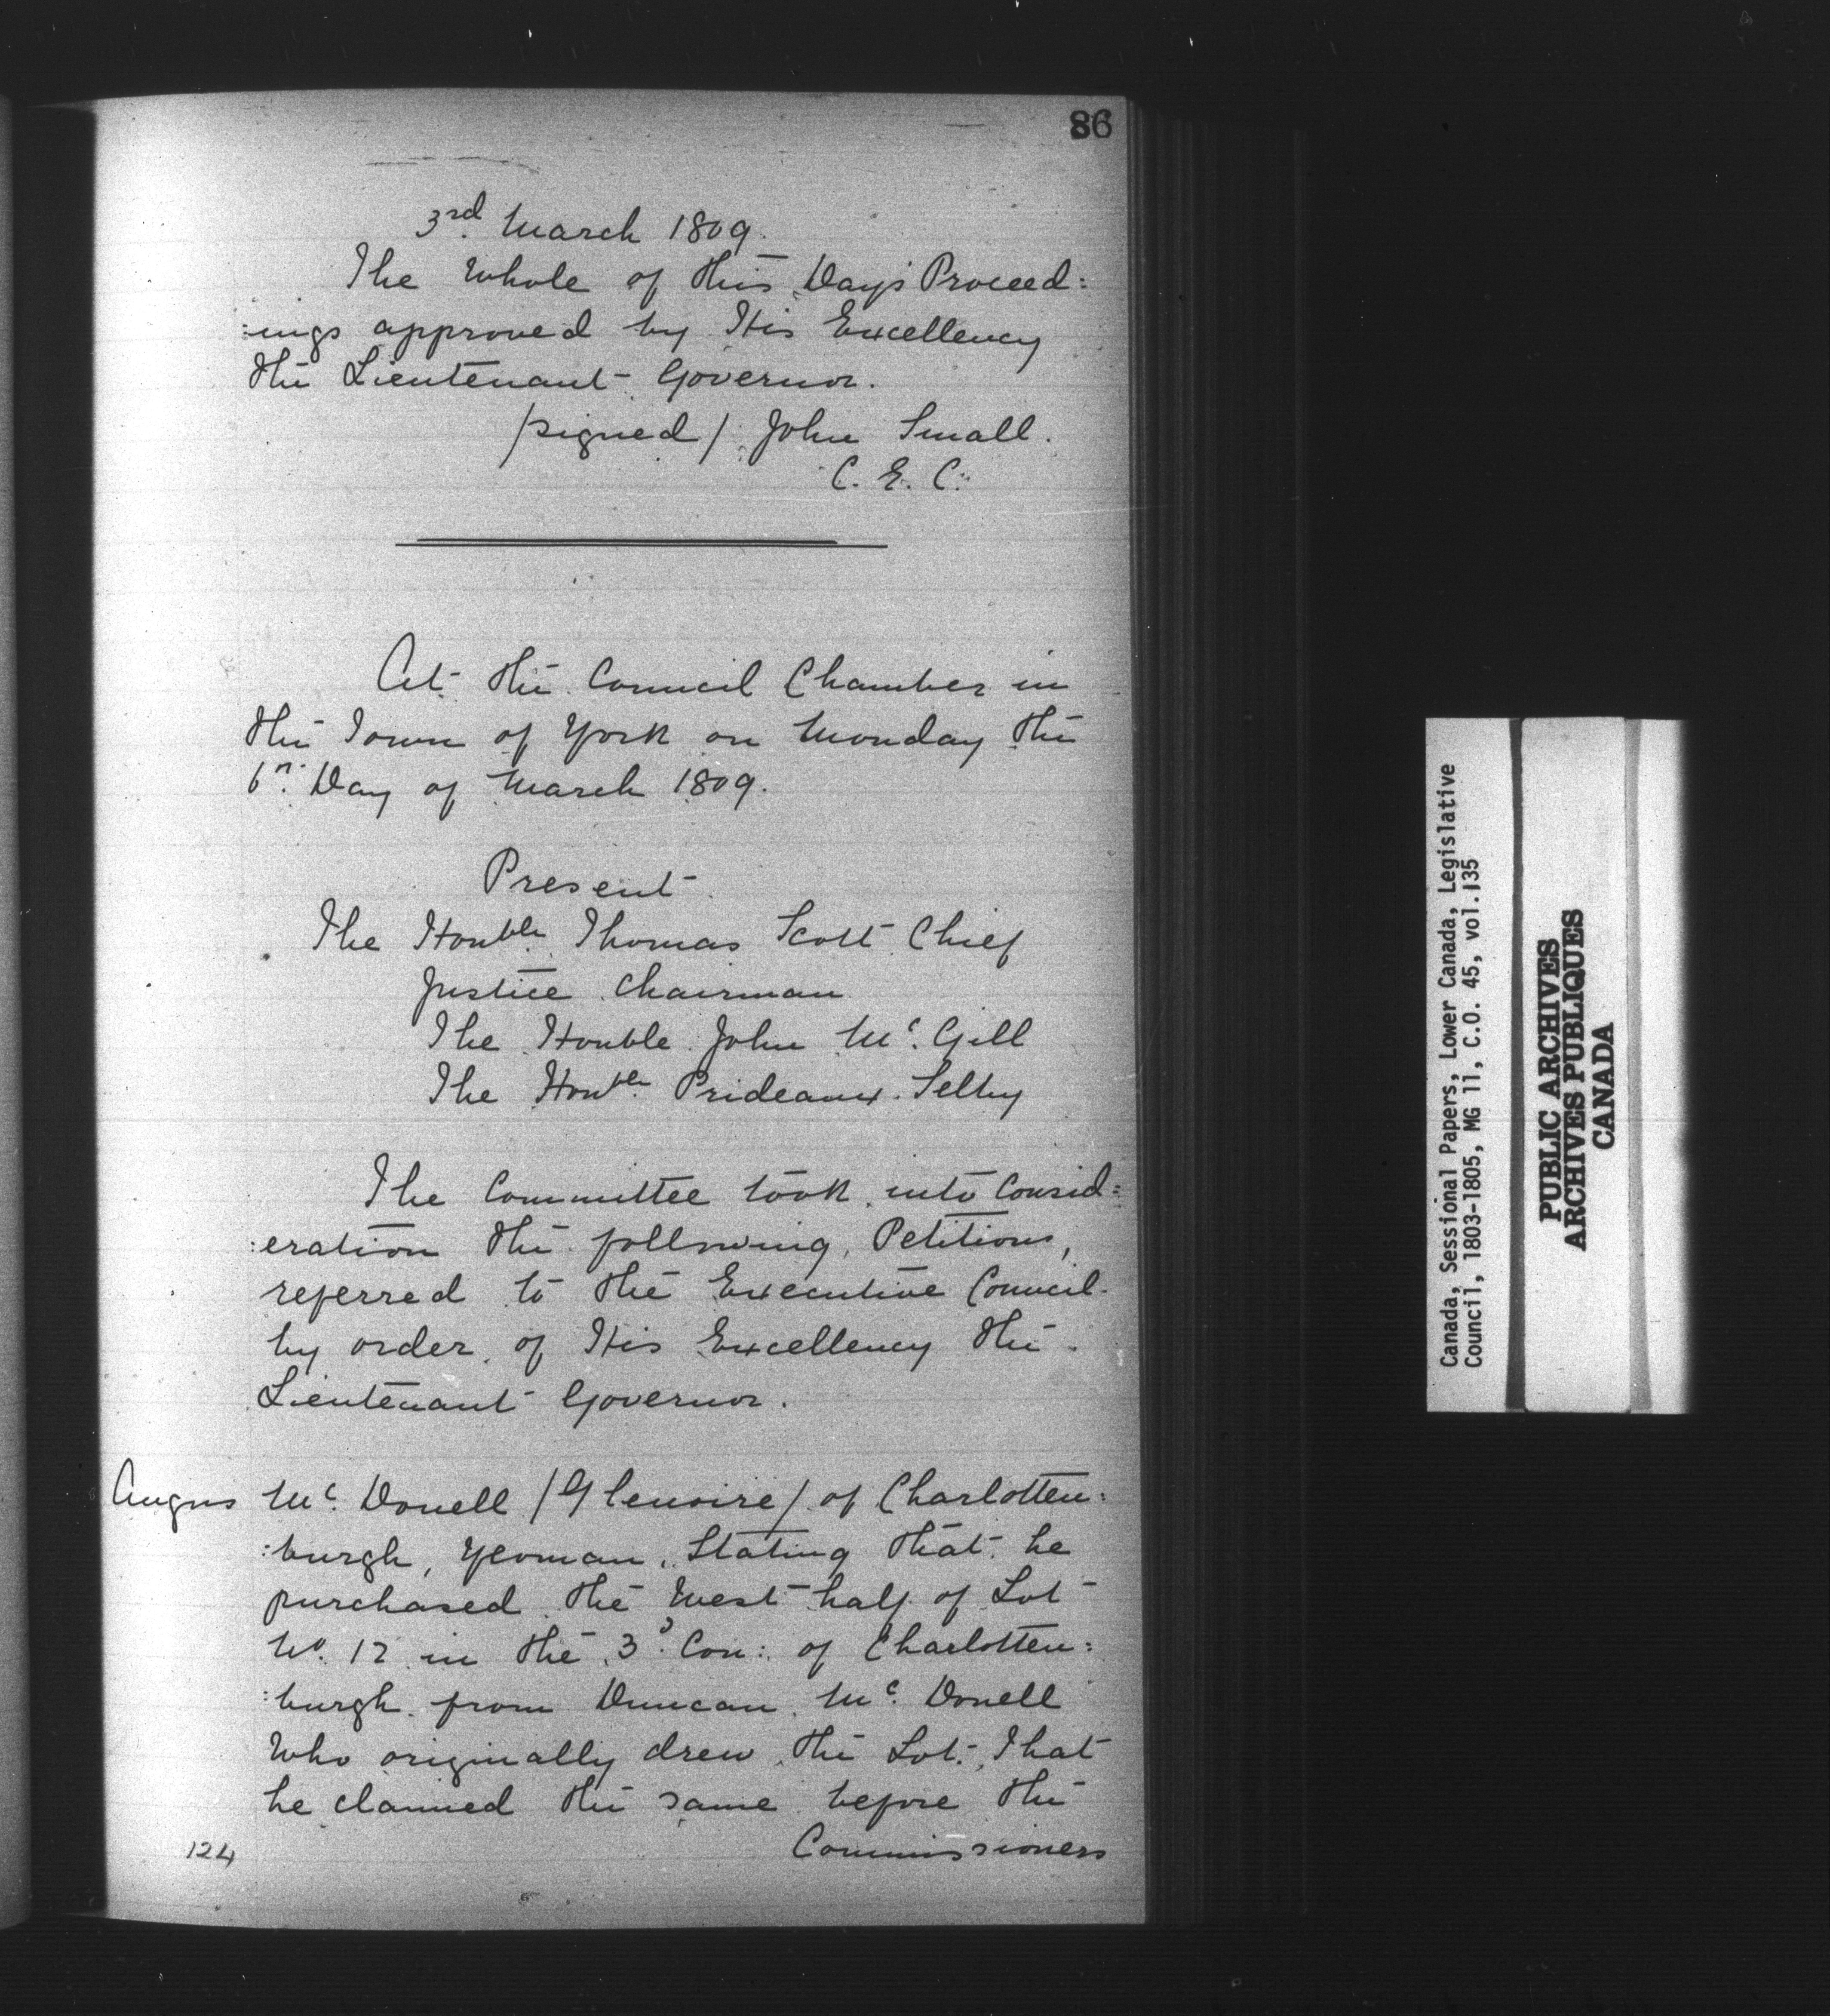 86
3rd. March 1809.
The Whole of this Days Proceed:
:ings approved by His Excellency
the Lieutenant Governor.
/signed/ John Small.
C. E. C.
At the Council Chamber in
the Town of York on Monday the
6th. Day of March 1809.
Present
The Honble. Thomas Scott Chief
Justice Chairman
The Honble John Mc. Gill
The Honble. Prideaux Selby
The Committee took into Consid:
:eration the following Petitions,
referred to the Executive Council
by order of His Excellency the
Lieutenant Governor.
Angus Mc. Donell /Glenoire/ of Charlotten:
:burgh, Yeoman, Stating that he
purchased the West half of Lot
No. 12 in the 3d. Con: of Charlotten:
:burgh from Duncan Mc. Donell
Who originally drew the Lot, That
he claimed the same before the
Commissioners
124
Canada, Sessional Papers, Lower Canada, Legislative
Council, 1803-1805, MG 11, C.O. 45, vol.135
PUBLIC ARCHIVES
ARCHIVES PUBLIQUES
CANADA